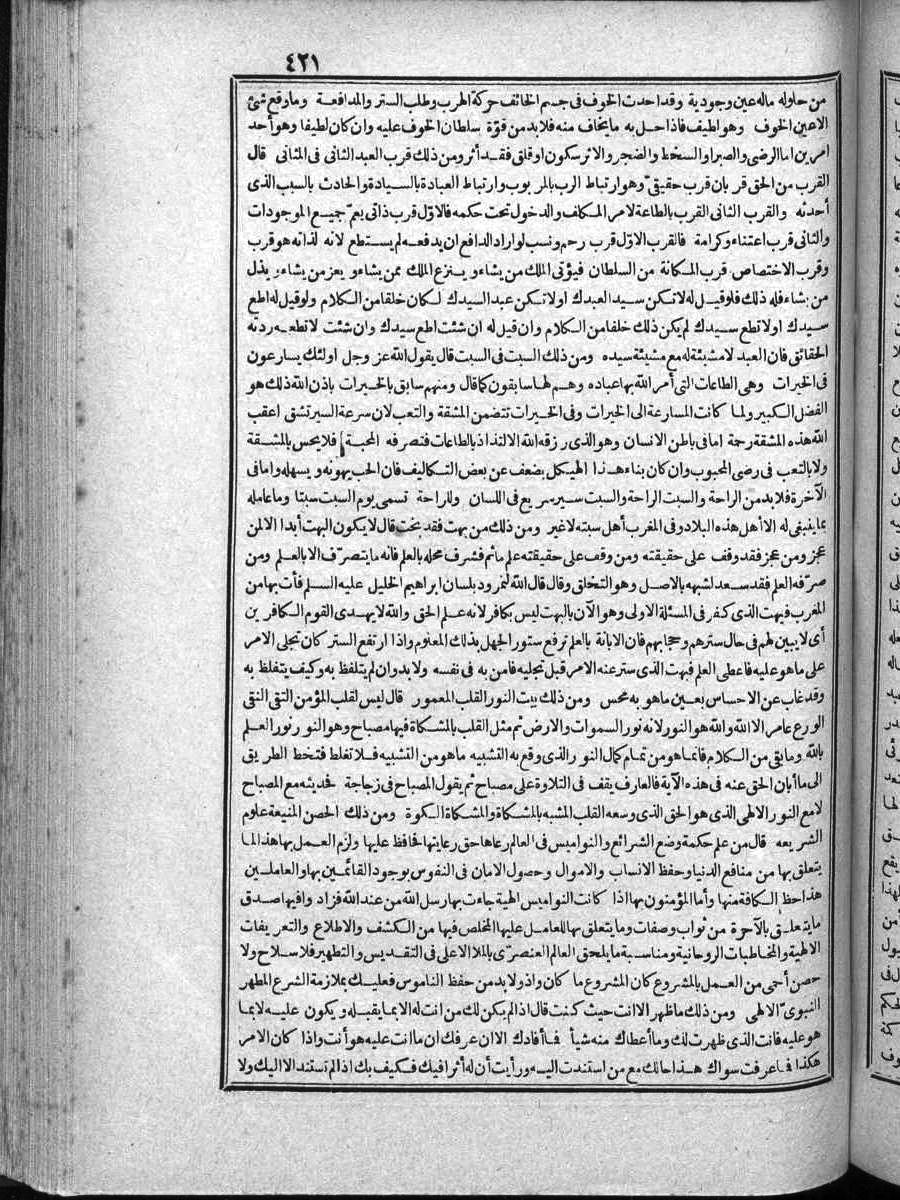 ٤٢١
من حاوله ماله عين وجودية وقد احدث الخوف فى جسم الخائف حركة الهرب وطلب الستر والمدافعة وما وقع شئ
الاعين الخوف وهو لطيف فاذا حل به ما يخاف منه فلا بد من قوّة سلطان الخوف عليه وان كان لطيفا وهو أحد
امرين اما الرضى والصبر او السخط والضجر والاثر سكون او قلق فقد أثر ومن ذلك قرب العبد الثانى فى المثانى قال
القرب من الحق قربان قرب حقيقىّ وهو ارتباط الرب بالمربوب وارتباط العبادة بالسيادة والحادث بالسبب الذى
أحدثه والقرب الثانى القرب بالطاعة لامر المكلف والدخول تحت حكمه فالاوّل قرب ذاتى يعمّ جميع الموجودات
والثانى قرب اعتناء وكرامة فالقرب الاوّل قرب رحم ونسب لو اراد الدافع ان يدفعه لم يستطع لانه لذاته هو قرب
وقرب الاختصاص قرب المكانة من السلطان فيؤتى الملك من يشاء وينزع الملك ممن يشاء ويعز من يشاء ويذل
من يشاء فله ذلك فلو قيل له لا تكن سيد العبدك او لا تكن عبد السيدك لكان خلفا من الكلام ولو قيل له اطع
سيدك او لا تطع سيدك لم يكن ذلك خلفا من الكلام وان قيل له ان شئت اطع سيدك وان شئت لا تطعه ردته
الحقائق فان العبد لا مشيئة له مع مشيئة سيده ومن ذلك السبت فى السبت قال يقول الله عز وجل اولئك يسارعون
فى الخيرات وهى الطاعات التى أمر الله بها عباده وهم لها سابقون كما قال ومنهم سابق بالخيرات باذن الله ذلك هو
الفضل الكبير ولما كانت المسارعة الى الخيرات وفى الخيرات تتضمن المشقة والتعب لان سرعة السير تشق اعقب
الله هذه المشقة رحمة اما فى باطن الانسان وهو الذى رزقه الله الالتذاذ بالطاعات فتصرفه المحبة فلا يحس بالمشقة
ولا بالتعب فى رضى المحبوب وان كان بناء هذا الهيكل يضعف عن بعض التكاليف فان الحب يهونه ويسهله واما فى
الآخرة فلا بد من الراحة والسبت الراحة والسبت سير سريع فى اللسان وللراحة تسمى يوم السبت سبتا وما عامله
بما ينبغى له الا أهل هذه البلاد وفى المغرب أهل سبته لا غير ومن ذلك من بهت فقد بخت قال لا يكون البهت أبدا الا لمن
عجز ومن عجز فقد وقف على حقيقته ومن وقف على حقيقته علم ما ثم فشرف محله بالعلم فانه ما يتصرّف الا بالعلم ومن
صرّفه العلم فقد سعد لشبهه بالاصل وهو التخلق وقال قال الله لنمرود بلسان ابراهيم الخليل عليه السلم فأت بها من
المغرب فبهت الذى كفر فى المسئلة الاولى وهو الآن بالبهت ليس بكافر لانه علم الحق والله لا يهدى القوم الكافرين
أى لا يبين لهم فى حال سترهم وحجابهم فان الابانة بالعلم ترفع ستور الجهل بذلك المعلوم واذا ارتفع الستر كان تجلى الامر
على ما هو عليه فاعطى العلم فبهت الذى ستر عنه الامر قبل تجليه فامن به فى نفسه ولا بد وان لم يتلفظ به وكيف يتلفظ به
وقد غاب عن الاحساس بعين ما هو به محس ومن ذلك بيت النور القلب المعمور قال ليس لقلب المؤمن التقى النقى
الورع عامر الا الله والله هو النور لانه نور السموات والارض ثم مثل القلب بالمشكاة فيها مصباح وهو النور نور العلم
بالله وما بقى من الكلام فانما هو من تمام كمال النور الذى وقع به التشبيه ما هو من التشبيه فلا تغلط فتخط الطريق
الى ما أبان الحق عنه فى هذه الآية فالعارف يقف فى التلاوة على مصباح ثم يقول المصباح فى زجاجة فحديثه مع المصباح
لا مع النور الالهى الذى هو الحق الذى وسعه القلب المشبه بالمشكاة والمشكاة الكوة ومن ذلك الحصن المنيعة علوم
الشريعه قال من علم حكمة وضع الشرائع والنواميس فى العالم رعاها حق رعايتها فحافظ عليها ولزم العمل بها هذا لما
يتعلق بها من منافع الدنيا وحفظ الانساب والاموال وحصول الامان فى النفوس بوجود القائمين بها والعاملين
هذا حظ الكافة منها وأما المؤمنون بها اذا كانت النواميس الهية جاءت بها رسل الله من عند الله فزاد وافيها صدق
ما يتعلق بالآخرة من ثواب وصفات وما يتعلق بها للعامل عليها المخلص فيها من الكشف والاطلاع والتعريفات
الالهية والمخاطبات الروحانية ومناسبة ما يلحق العالم العنصرىّ بالملا الاعلى فى التقديس والتطهير فلا سلاح ولا
حصن أحمى من العمل بالمشروع كان المشروع ما كان واذ ولا بد من حفظ الناموس فعليك بملازمة الشرع المطهر
النبوىّ الالهى ومن ذلك ما ظهر الا انت حيث كنت قال اذا لم يكن لك من انت له الا بما يقبله ويكون عليه لا بما
هو عليه فانت الذى ظهرت لك وما أعطاك منه شيأ فما أفادك الا ان عرفك ان ما انت عليه هو أنت واذا كان الامر
هكذا فما عرفت سواك هذا حالك مع من استندت اليه ورأيت أن له أثرا فيك فكيف بك اذا لم تستند الا اليك ولا